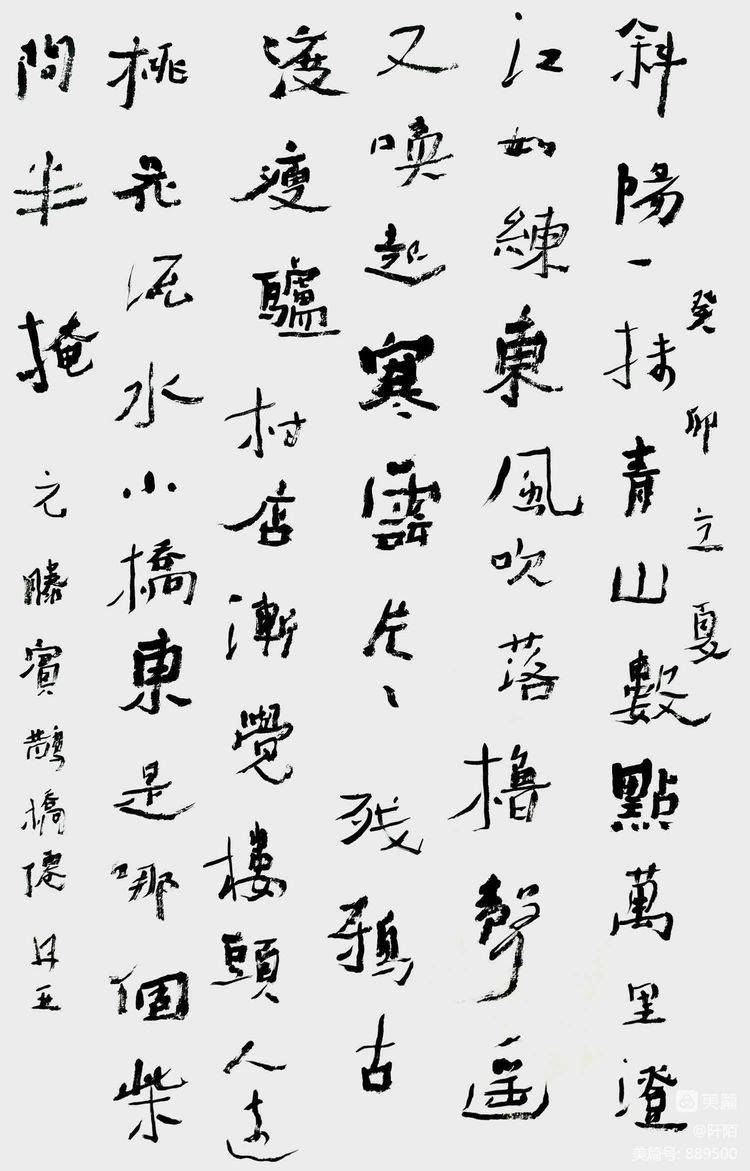 斜陽一抹青山數點萬里澄
江如練東風吹落櫓聲遥
又喚起寒雲片〻残鴉古
渡瘦驢村店漸覺樓頭人遠
桃花流水小橋東是哪個柴
問半掩
元滕賓鵲橋僊
癸卯立夏
美篇
@阡陌
美篇号: 889500